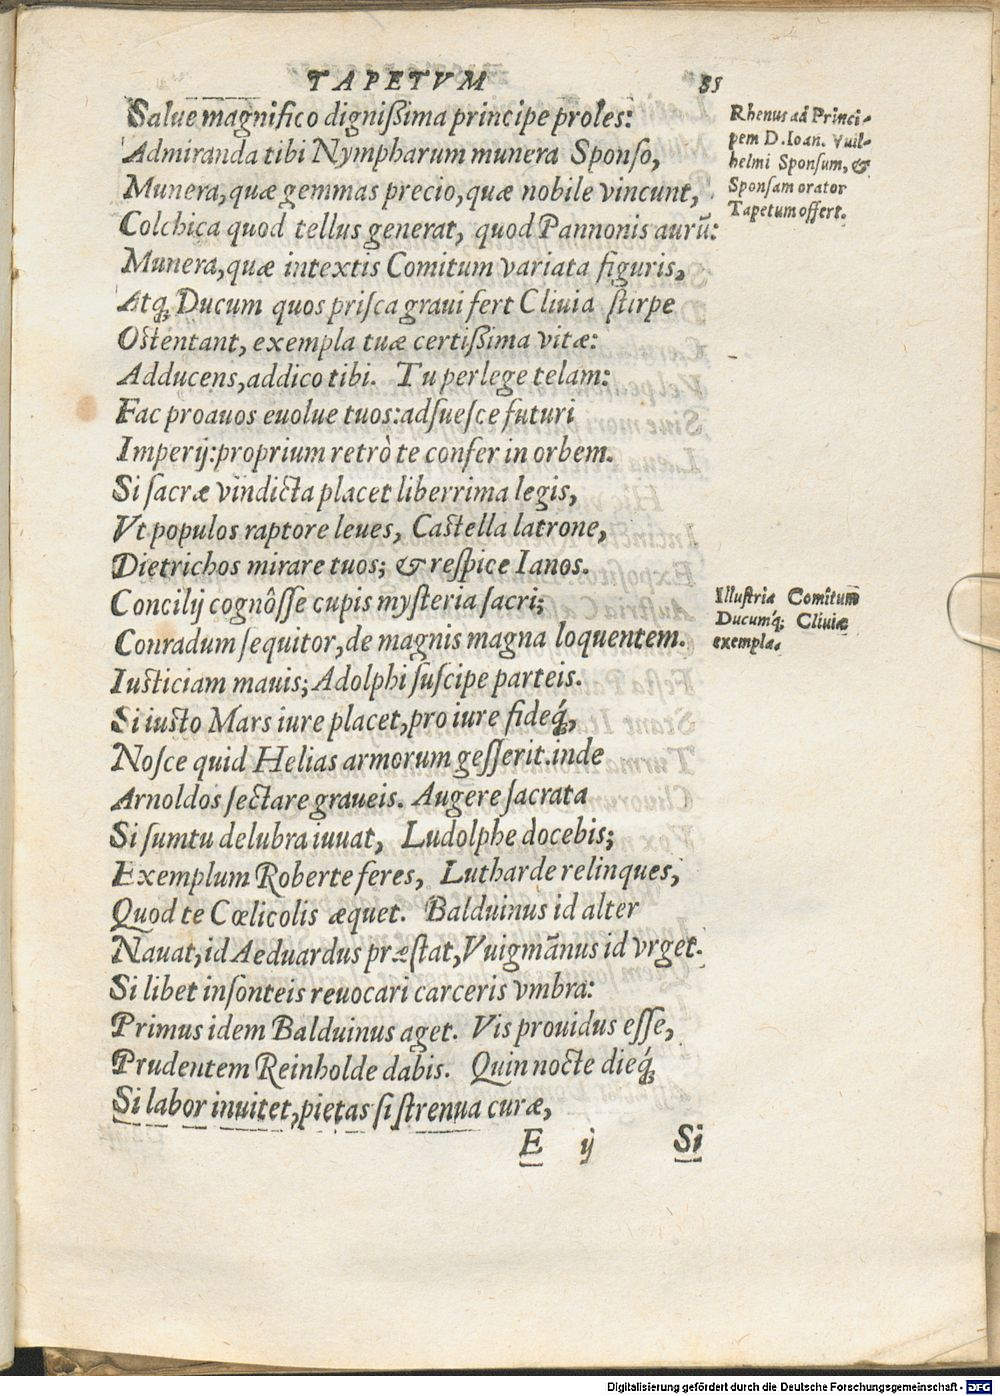 TAPETVM 35
Salue magnifico dignißima principe proles:
Admiranda tibi Nympharum munera Sponso,
Munera, quæ gemmas precio, quæ nobile vincunt,
Colchica quod tellus generat, quod Pannonis aurū:
Munera, quæ intextis Comitum variata figuris,
Atq́; Ducum quos prisca graui fert Cliuia stirpe
Ostentant, exempla tuæ certißima vitæ:
Adducens, addico tibi. Tu perlege telam:
Fac proauos euolue tuos: adsuesce futuri
Imperij: proprium retrò te confer in orbem.
Si sacræ vindicta placet liberrima legis,
Vt populos raptore leues, Castella latrone,
Dietrichos mirare tuos; & respice Ianos.
Concilij cognôsse cupis mysteria sacri;
Conradum sequitor, de magnis magna loquentem.
Iusticiam mauis; Adolphi suscipe parteis.
Si iusto Mars iure placet, pro iure fideq́;,
Nosce quid Helias armorum gesserit. inde
Arnoldos sectare graueis. Augere sacrata
Si sumtu delubra iuuat, Ludolphe docebis;
Exemplum Roberte feres, Lutharde relinques,
Quod te Cœlicolis æquet. Balduinus id alter
Nauat, id Aeduardus præstat, Vuigmānus id vrget.
Si libet insonteis reuocari carceris vmbra:
Primus idem Balduinus aget. Vis prouidus esse,
Prudentem Reinholde dabis. Quin nocte dieq́;
Si labor inuitet, pietas si strenua curæ,
E ij Si
Rhenus ad Princi-
pem D. Ioan. Vuil-
helmi Sponsum, &
Sponsam orator
Tapetum offert.
Illustria Comitum̄
Ducumq́; Cliuiæ
exempla.
Digitalisierung gefördert durch die Deutsche Forschungsgemeinschaft - DFG